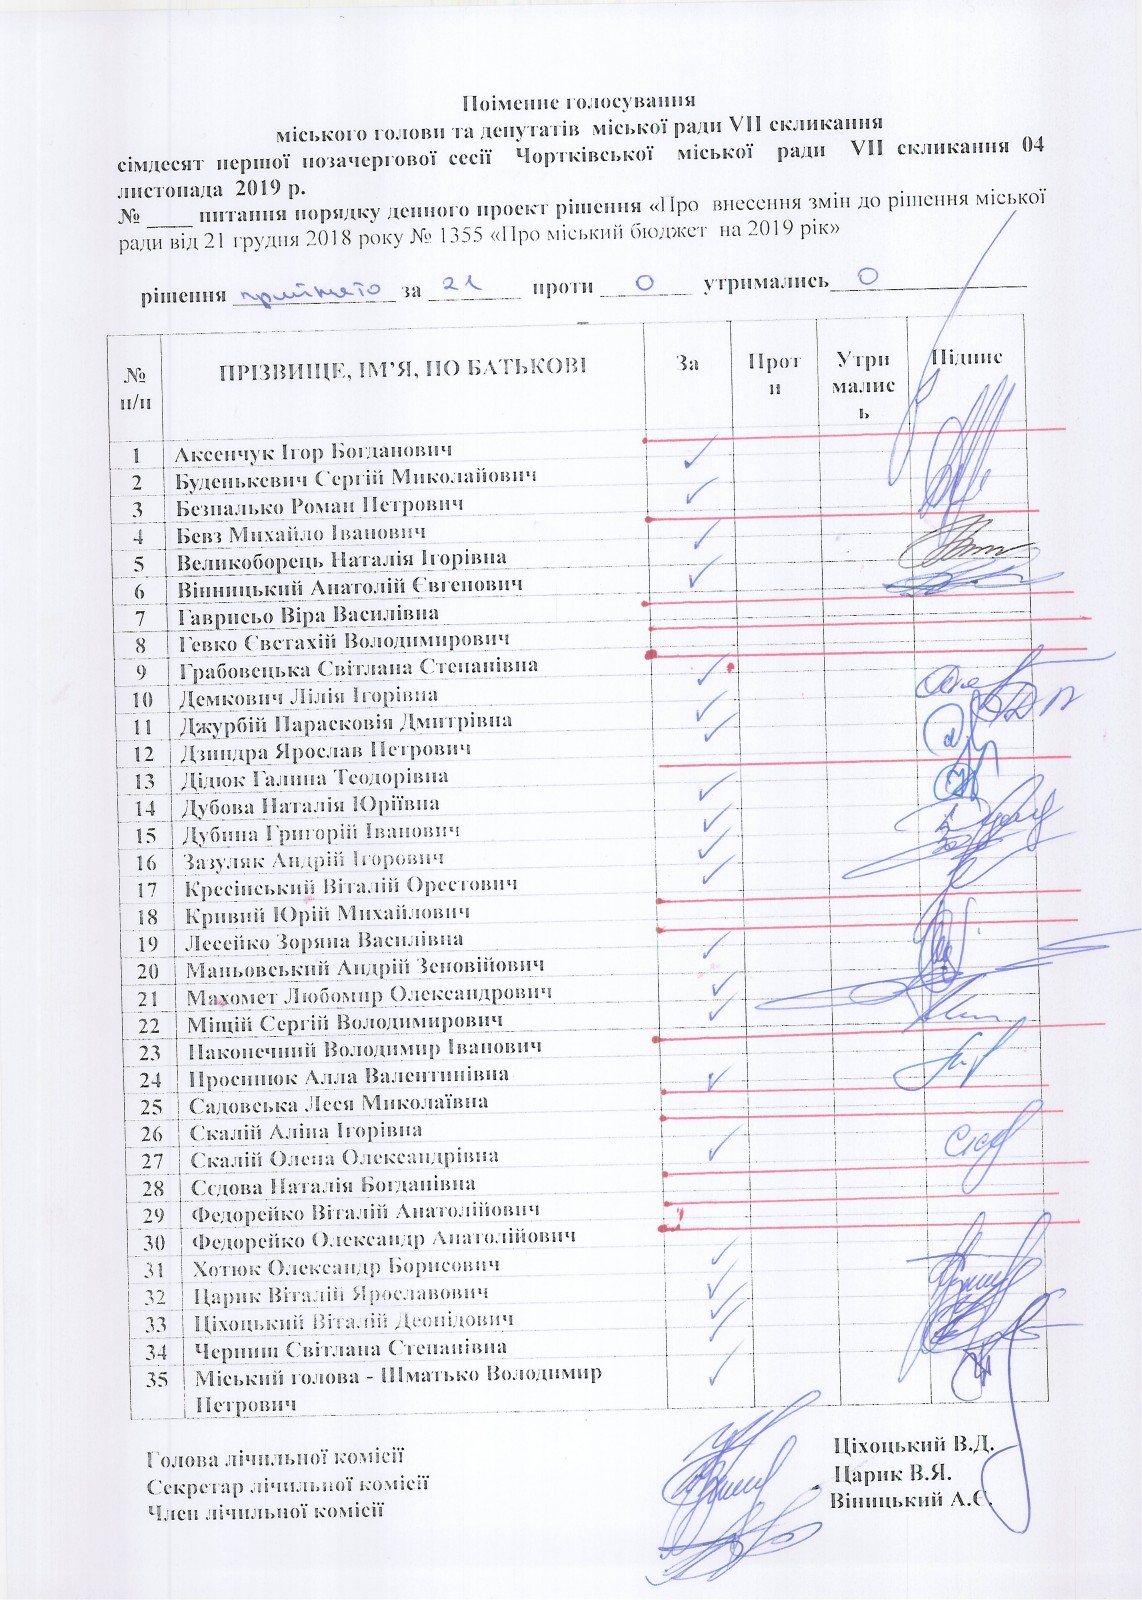 Поіменне голосування
міського голови та депутатів міської ради VII скликання
сімдесят першої позачергової сесії Чортківської міської ради VII скликання 04
листопада 2019 р.
№ ____ питання порядку денного проект рішення «Про внесення змін до рішення міської
ради від 21 грудня 2018 року № 1355 «Про міський бюджет на 2019 рік»
рішення прийнято за 21 проти 0 утримались 0
№ п/п ПРІЗВИЩЕ, ІМ’Я, ПО БАТЬКОВІ За Проти Утрималис ь Підпис
1 Аксенчук Ігор Богданович
2 Буденькевич Сергій Миколайович ✓
3 Безпалько Роман Петрович ✓
4 Бевз Михайло Іванович
5 Великоборець Наталія Ігорівна ✓
6 Вінницький Анатолій Євгенович ✓
7 Гаврисьо Віра Василівна
8 Гевко Євстахій Володимирович
9 Грабовецька Світлана Степанівна
10 Демкович Лілія Ігорівна ✓
11 Джурбій Парасковія Дмитрівна ✓
12 Дзиндра Ярослав Петрович ✓
13 Дідюк Галина Теодорівна
14 Дубова Наталія Юріївна ✓
15 Дубина Григорій Іванович ✓
16 Зазуляк Андрій Ігорович ✓
17 Кресінський Віталій Орестович ✓
18 Кривий Юрій Михайлович
19 Лесейко Зоряна Василівна
20 Маньовський Андрій Зеновійович ✓
21 Махомет Любомир Олександрович ✓
22 Міщій Сергій Володимирович ✓
23 Наконечний Володимир Іванович
24 Просинюк Алла Валентинівна ✓
25 Садовська Леся Миколаївна
26 Скалій Аліна Ігорівна
27 Скалій Олена Олександрівна ✓
28 Сєдова Наталія Богданівна
29 Федорейко Віталій Анатолійович
30 Федорейко Олександр Анатолійович
31 Хотюк Олександр Борисович ✓
32 Царик Віталій Ярославович ✓
33 Ціхоцький Віталій Деонідович ✓
34 Черниш Світлана Степанівна ✓
35 Міський голова - Шматько Володимир
Петрович ✓
Голова лічильної комісії Ціхоцький В.Д.
Секретар лічильної комісії Царик В.Я.
Член лічильної комісії Віницький А.Є.